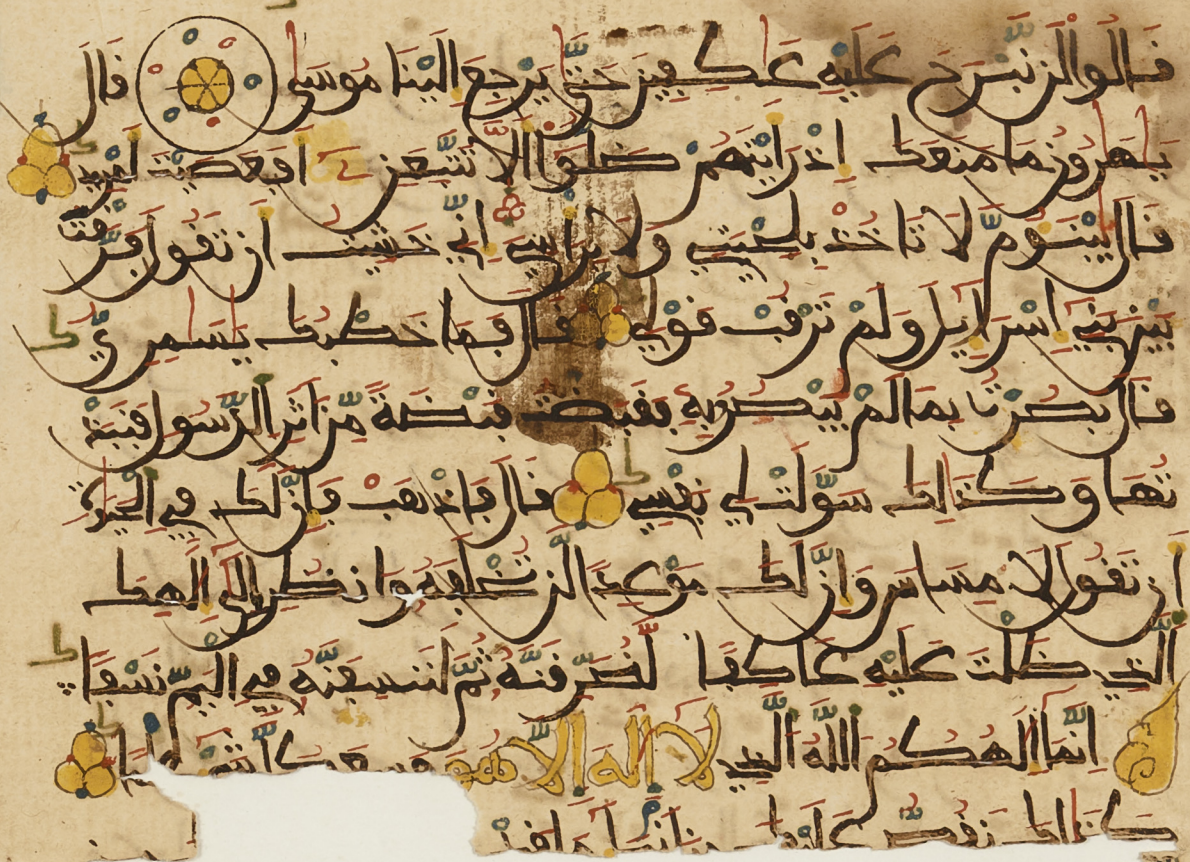 قالوا لن نبرح عليه عاكفين حتى يرجع إلينا موسى قال
يهرون ما منعك إذ رأيتهم ضلوا ألا تتبعن أفعصيت أمري
قال يبنؤم لا تأخذ بلحيتي ولا برأسي إني خشيت أن تقول فرقت
بين بني إسرائيل ولم ترقب قولي قال فما خطبك يسمري
قال بصرت بما لم يبصروا به فقبضت قبضة من أثر الرسول فنبذ
تها وكذلك سولت لي نفسي قال فاذهب فإن لك في الحيوة
أن تقول لا مساس وإن لك موعدا لن تخلفه وانظر إلى إلهك
الذي ظلت عليه عاكفا لنحرقنه ثم لننسفنه في اليم نسفا
إنما إلهكم الله الذي لا إله إلا هو وسع كل شيء علما
كذلك نقص عليك من أنباء ما قد